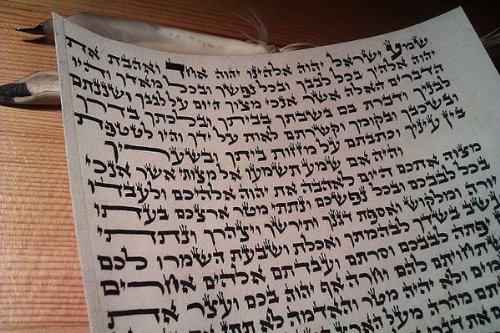 שמע ישראל יהוה אלהינו יהוה אחד ואהבת את
יהוה אלהיך בכל לבבך ובכל נפשך ובכל מאדך והיו
הדברים האלה אשר אנכי מצוך היום על לבבך ושננתם
לבניך ודברת בם בשבתך בביתך ובלכתך בדרך
ובשכבך ובקומך וקשרתם לאות על ידך והיו לטטפת
בין עיניך וכתבתם על מזזות ביתך ובשעריך
והיה אם שמע תשמעו אל מצותי אשר אנכי
מצוה אתכם היום לאהבה את יהוה אלהיכם ולעבדו
בכל לבבכם ובכל נפשכם ונתתי מטר ארצכם בעתו
יורה ומלקוש ואספת דגנך ותירשך ויצהרך ונתתי
עשב בשדך לבהמתך ואכלת ושבעת השמרו לכם
לבבכם וסרתם ועבדתם אלהים אחרים
להם וחרה אף יהוה בכם ועצר את
ולא יהיה מטר והאדמה לא
מהרה מעל